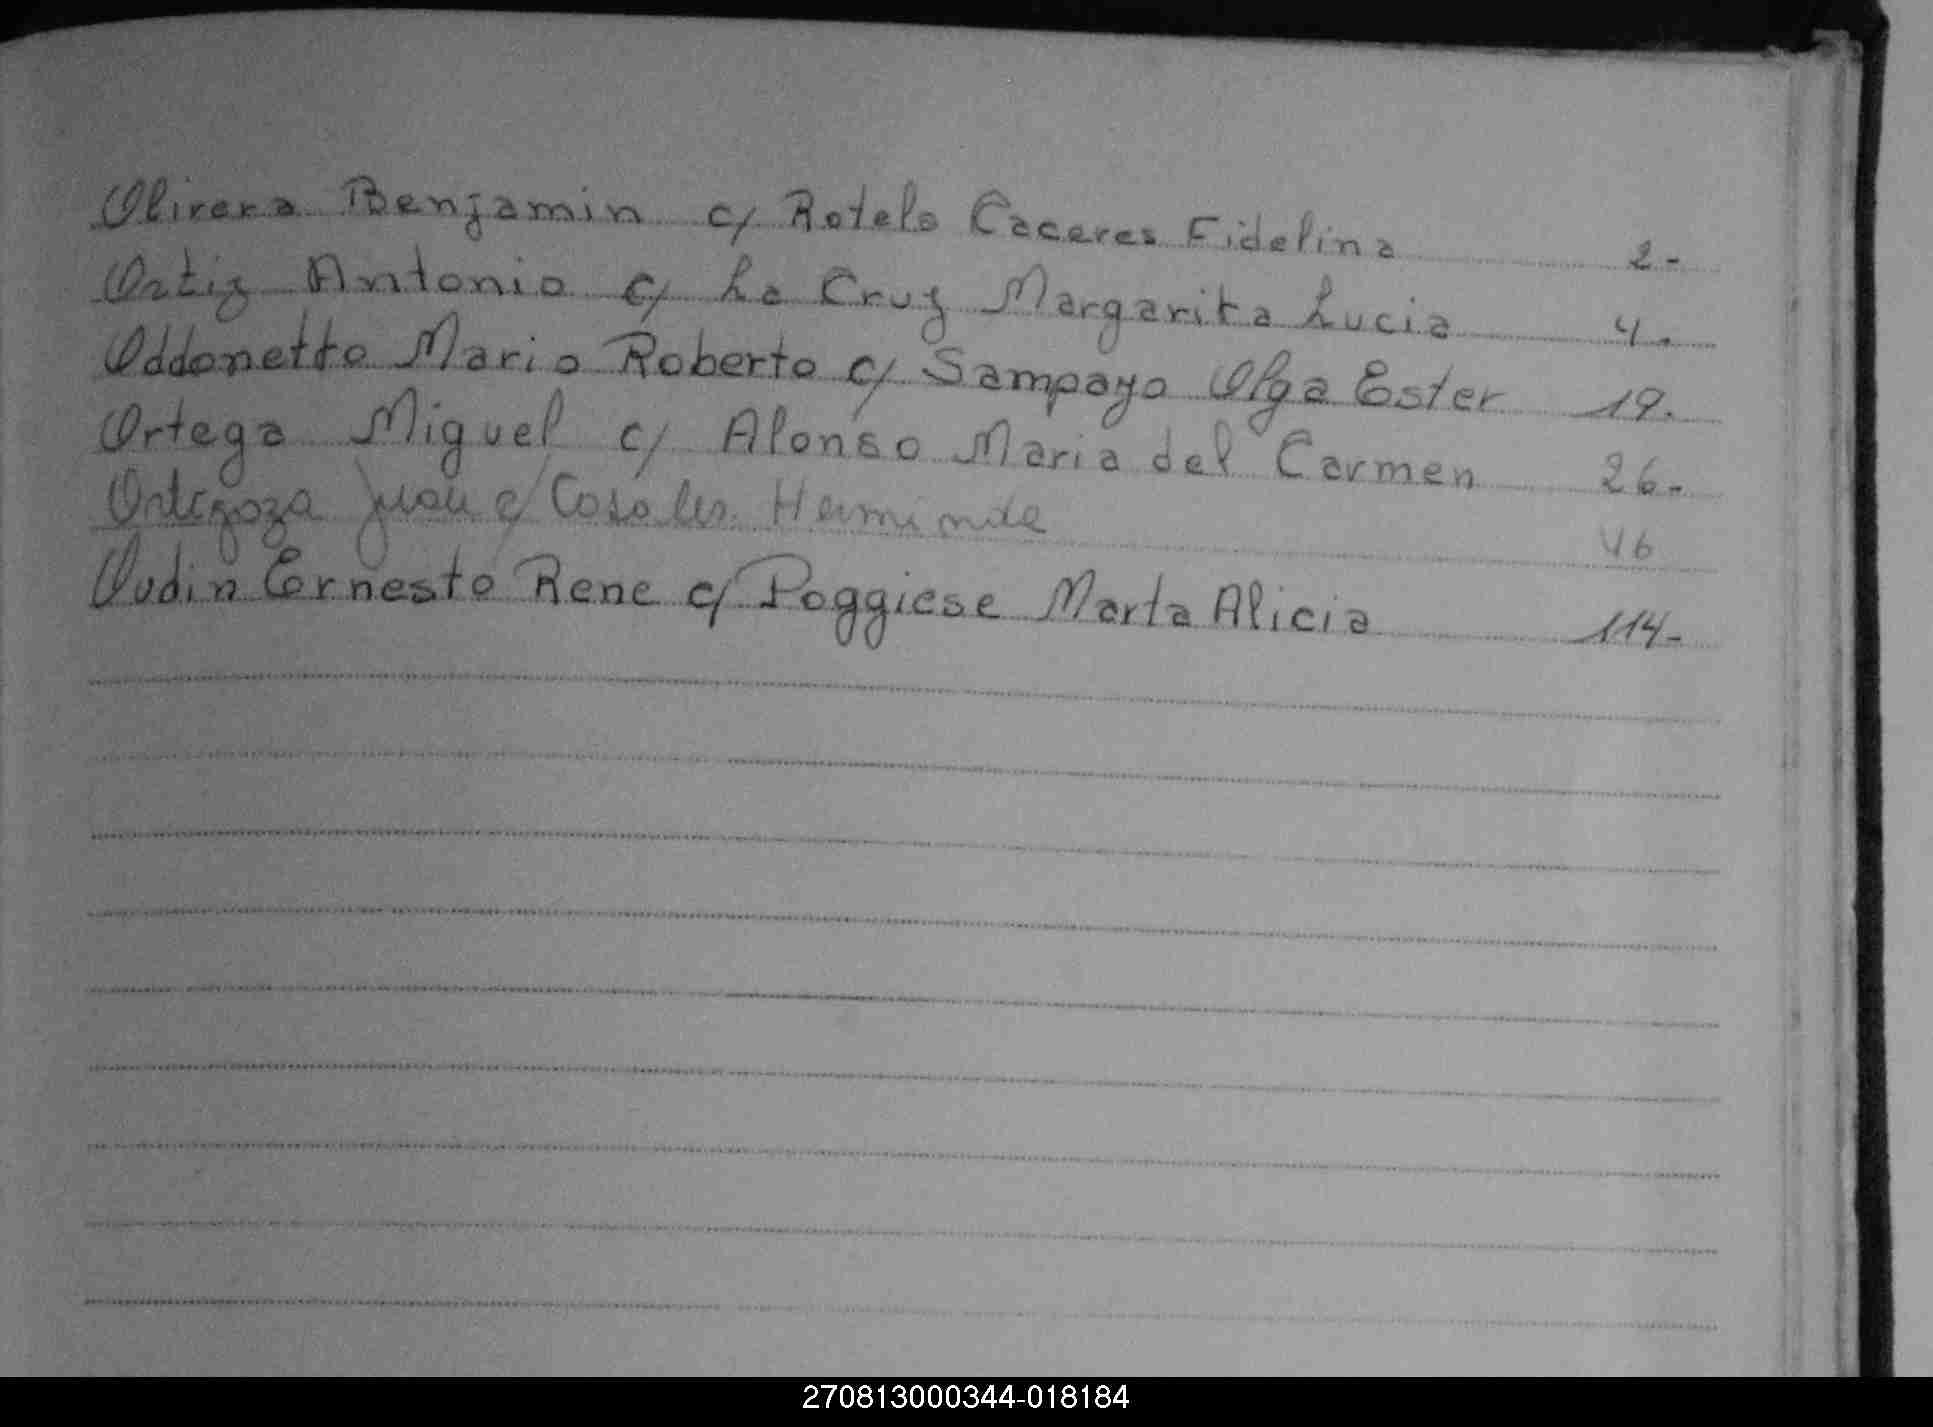 Olivera Benjamin c/ Rotelo Caceres Fidelina 2-
Ortiz Antonio c/ La Cruz Margarita Lucia 4.
Oddonetto Mario Roberto c/ Sampayo Olga Ester 19.
Ortega Miguel c/ Alonso Maria del Carmen 26-
Ortegoza Juan c/ Casales Herminda 46
Oudin Ernesto Rene c/ Poggiese Marta Alicia 114-
270813000344-018184